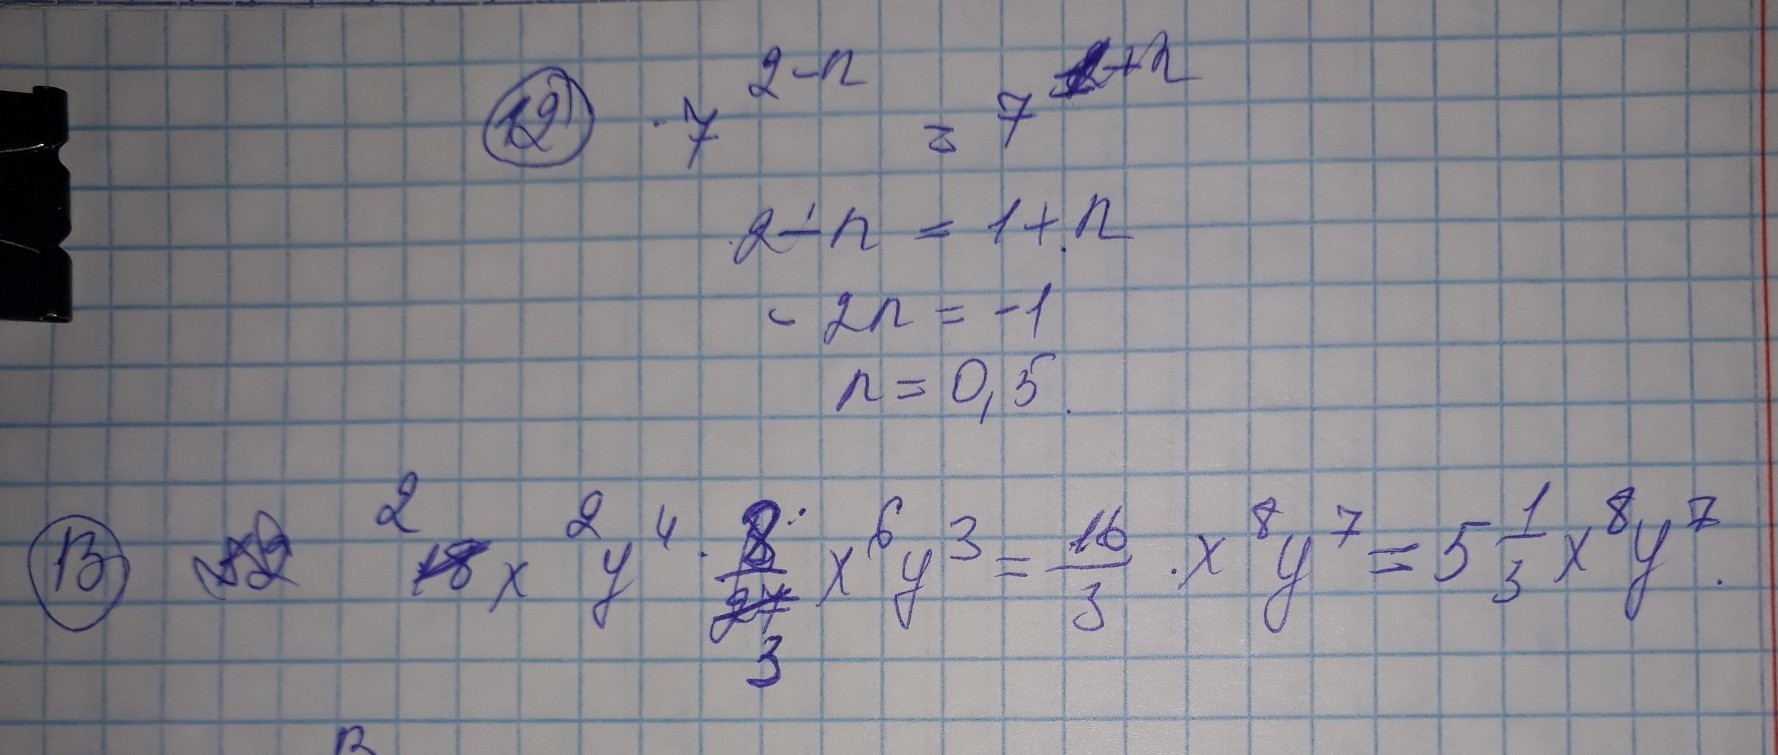 12 7^{2-n} = 7^{1+n}
2-n = 1+n
-2n = -1
n = 0,5.
13 18x^2y^4 · 8/27 x^6y^3 = 16/3 · x^8y^7 = 5 1/3 x^8y^7.